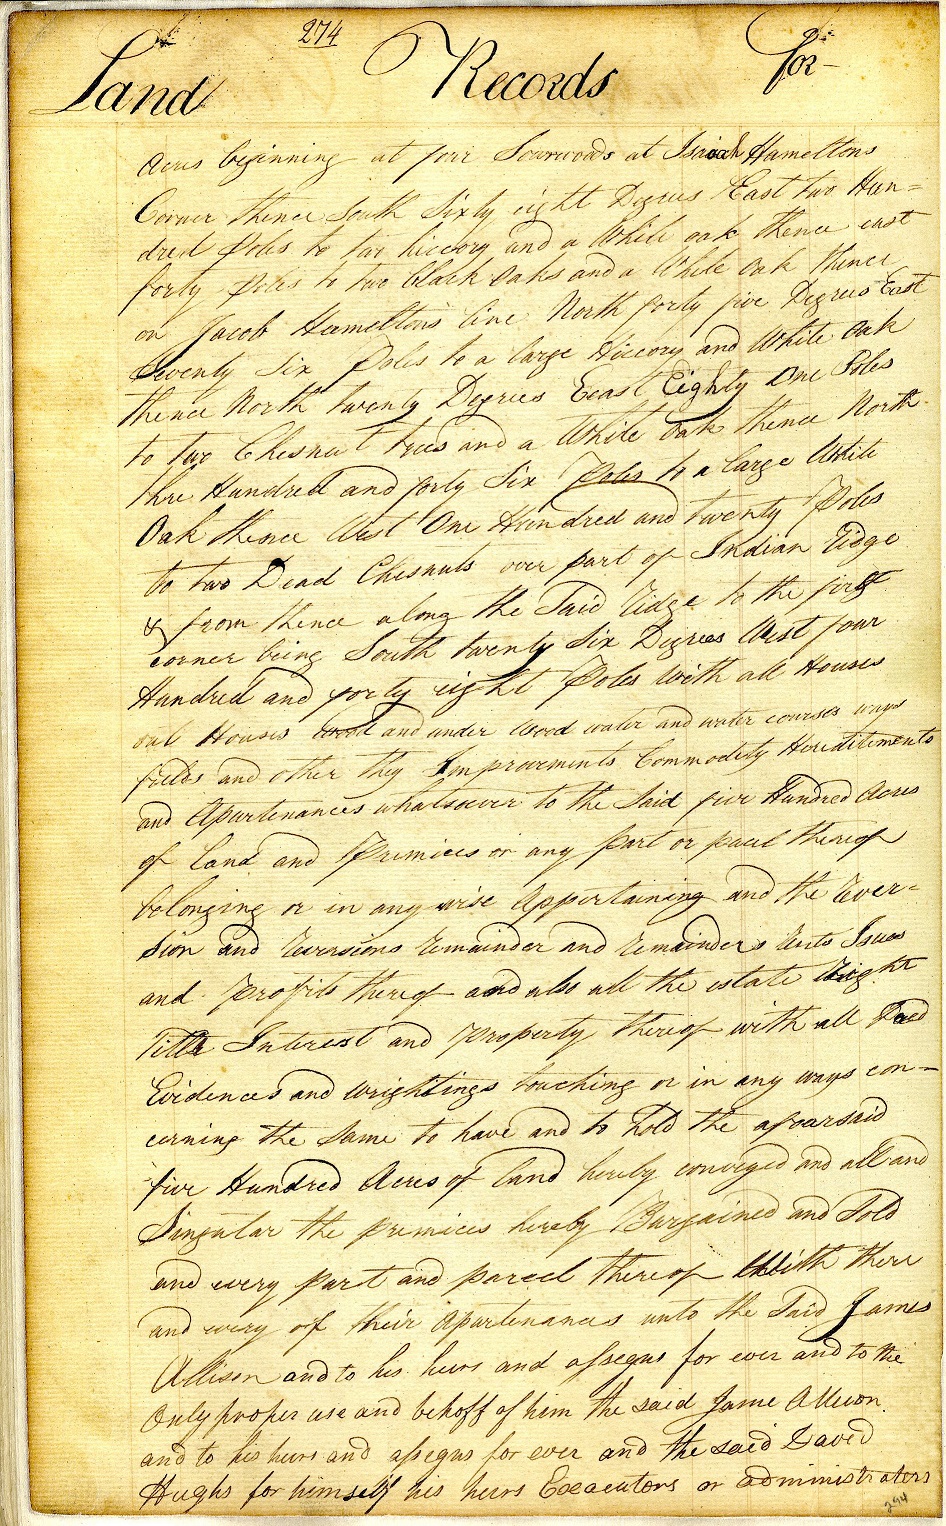 274
Land Records for
Acres beginning at four Sourwoods at Isaiah Hameltons
Corner thence South Sixty eight Degrees East two Hun=
dred Poles to two hiccory and a White oak thence east
forty Poles to two black oaks and a White oak thence
on Jacob Hameltons line North forty five Degrees East
Seventy Six Poles to a large Hiccory and White oak
thence North twenty Degrees East Eighty One Poles
to two Chesnut trees and a White oak thence North
three Hundred and forty Six Poles to a large White
Oak thence West One Hundred and twenty Poles
to two Dead Chesnuts over part of Indian Ridge
& from thence along the Said Ridge to the first
corner being South twenty Six Degrees West four
Hundred and forty eight Poles with all Houses
out Houses wood and under Wood water and water courses ways
fields and other they Improvements Commodity Hereditements
and Apurtenances whatsoever to the Said five Hundred Acres
of land and Premices or any Part or parcel thereof
belonging or in any wise Appertaining and the Rever=
sion and Reversions Remainder and Remainders Rents Issues
and Profits thereof and also all the estate Right
Title Interest and Property thereof with all Deed
Evidences and wrightings touching or in any ways con=
cerning the Same to have and to hold the afoarsaid
five Hundred Acres of land hereby conveyed and all and
Singular the premices hereby Bargained and Sold
and every part and parcel thereof With there
and every of their Apurtenances unto the Said James
Allison and to his heirs and assegns for ever and to the
Only proper use and behoff of him the said Jame Allison
and to his heirs and assegns for ever and the said David
Hughs for himself his heirs Executors or administrators
294